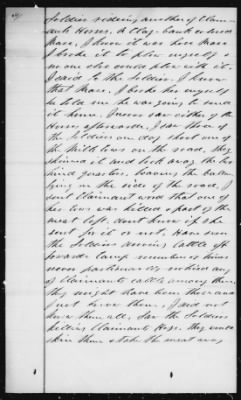 Soldier riding another of Claim-
ants Horses. A Clay-bank or dun
Mare, I know it was her Mare
I broke it to plow myself &
no one else could plow with it.
I said to the Soldier, I know
that Mare. I broke her myself
he told me he was going to send
it home. I never saw either of the
Horses afterwards. I saw them of
the Soldiers one day shoot one of
the Milk Cows on the road, they
skinned it and took away the two
hind quarters. leaving the balance
lying on the side of the road, I
sent Claimant word that one of
his cows was killed & part of the
meat left. dont know if she
sent for it or not. Have seen
the Soldiers driving Cattle off
towards Camp numberless times
never particularly noticed any
of Claimants cattle among them,
they might have been there and
just have them. I did not
know them all. Saw the Soldiers
killing Claimants Hogs. They would
skin them & take the meat away